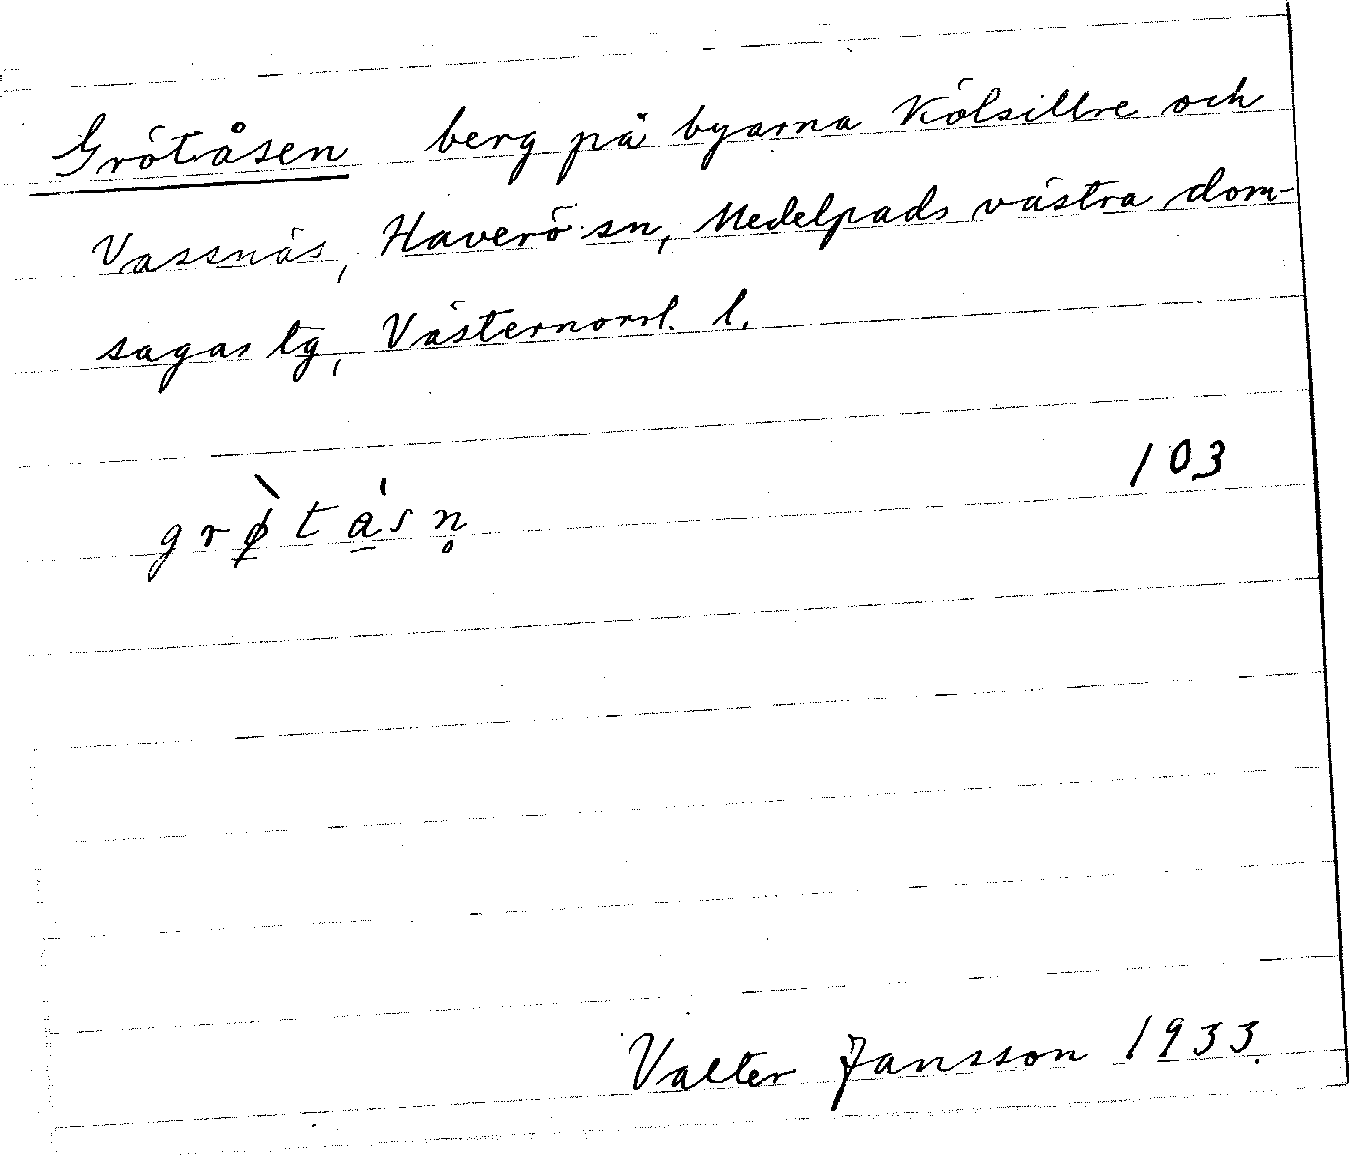 Grötåsen berg på byarna Kölsillre och
Vassnäs, Haverö sn, Medelpads västra dom-
sagas tg, Västernorrl. l.
103
grø̀tásn̥
Valter Jansson 1933.